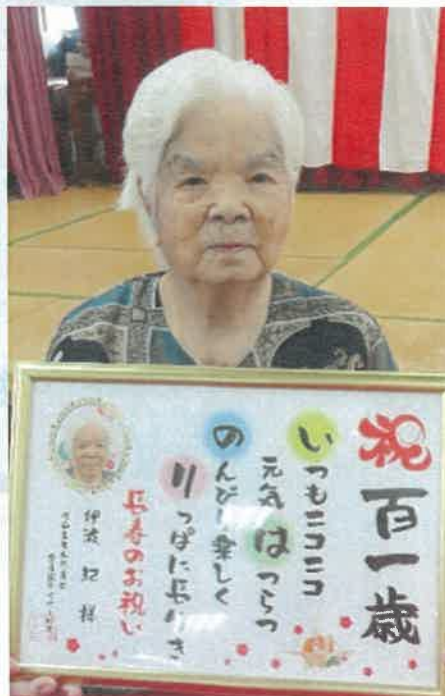 祝百一歳
いつもニコニコ
元気はつらつ
のんびり楽しく
りっぱに長生き
長寿のお祝い
伊波 紀 様